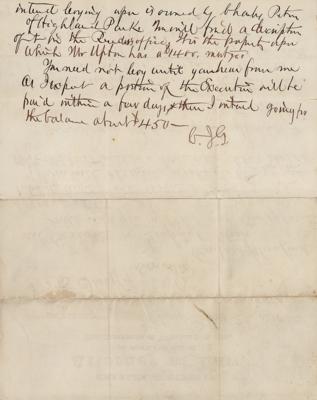 intend levying upon is owned by Charley Paton
of Highland Parke You will find a description
of it in the Registers office, It is the property upon
Which Mr Upton has a $1400. mortgage
You need not levy until you hear from me
as I expect a portion of the Execution will be
paid within a few days, & then I intend going for
the balance about $450—
C. J. G.